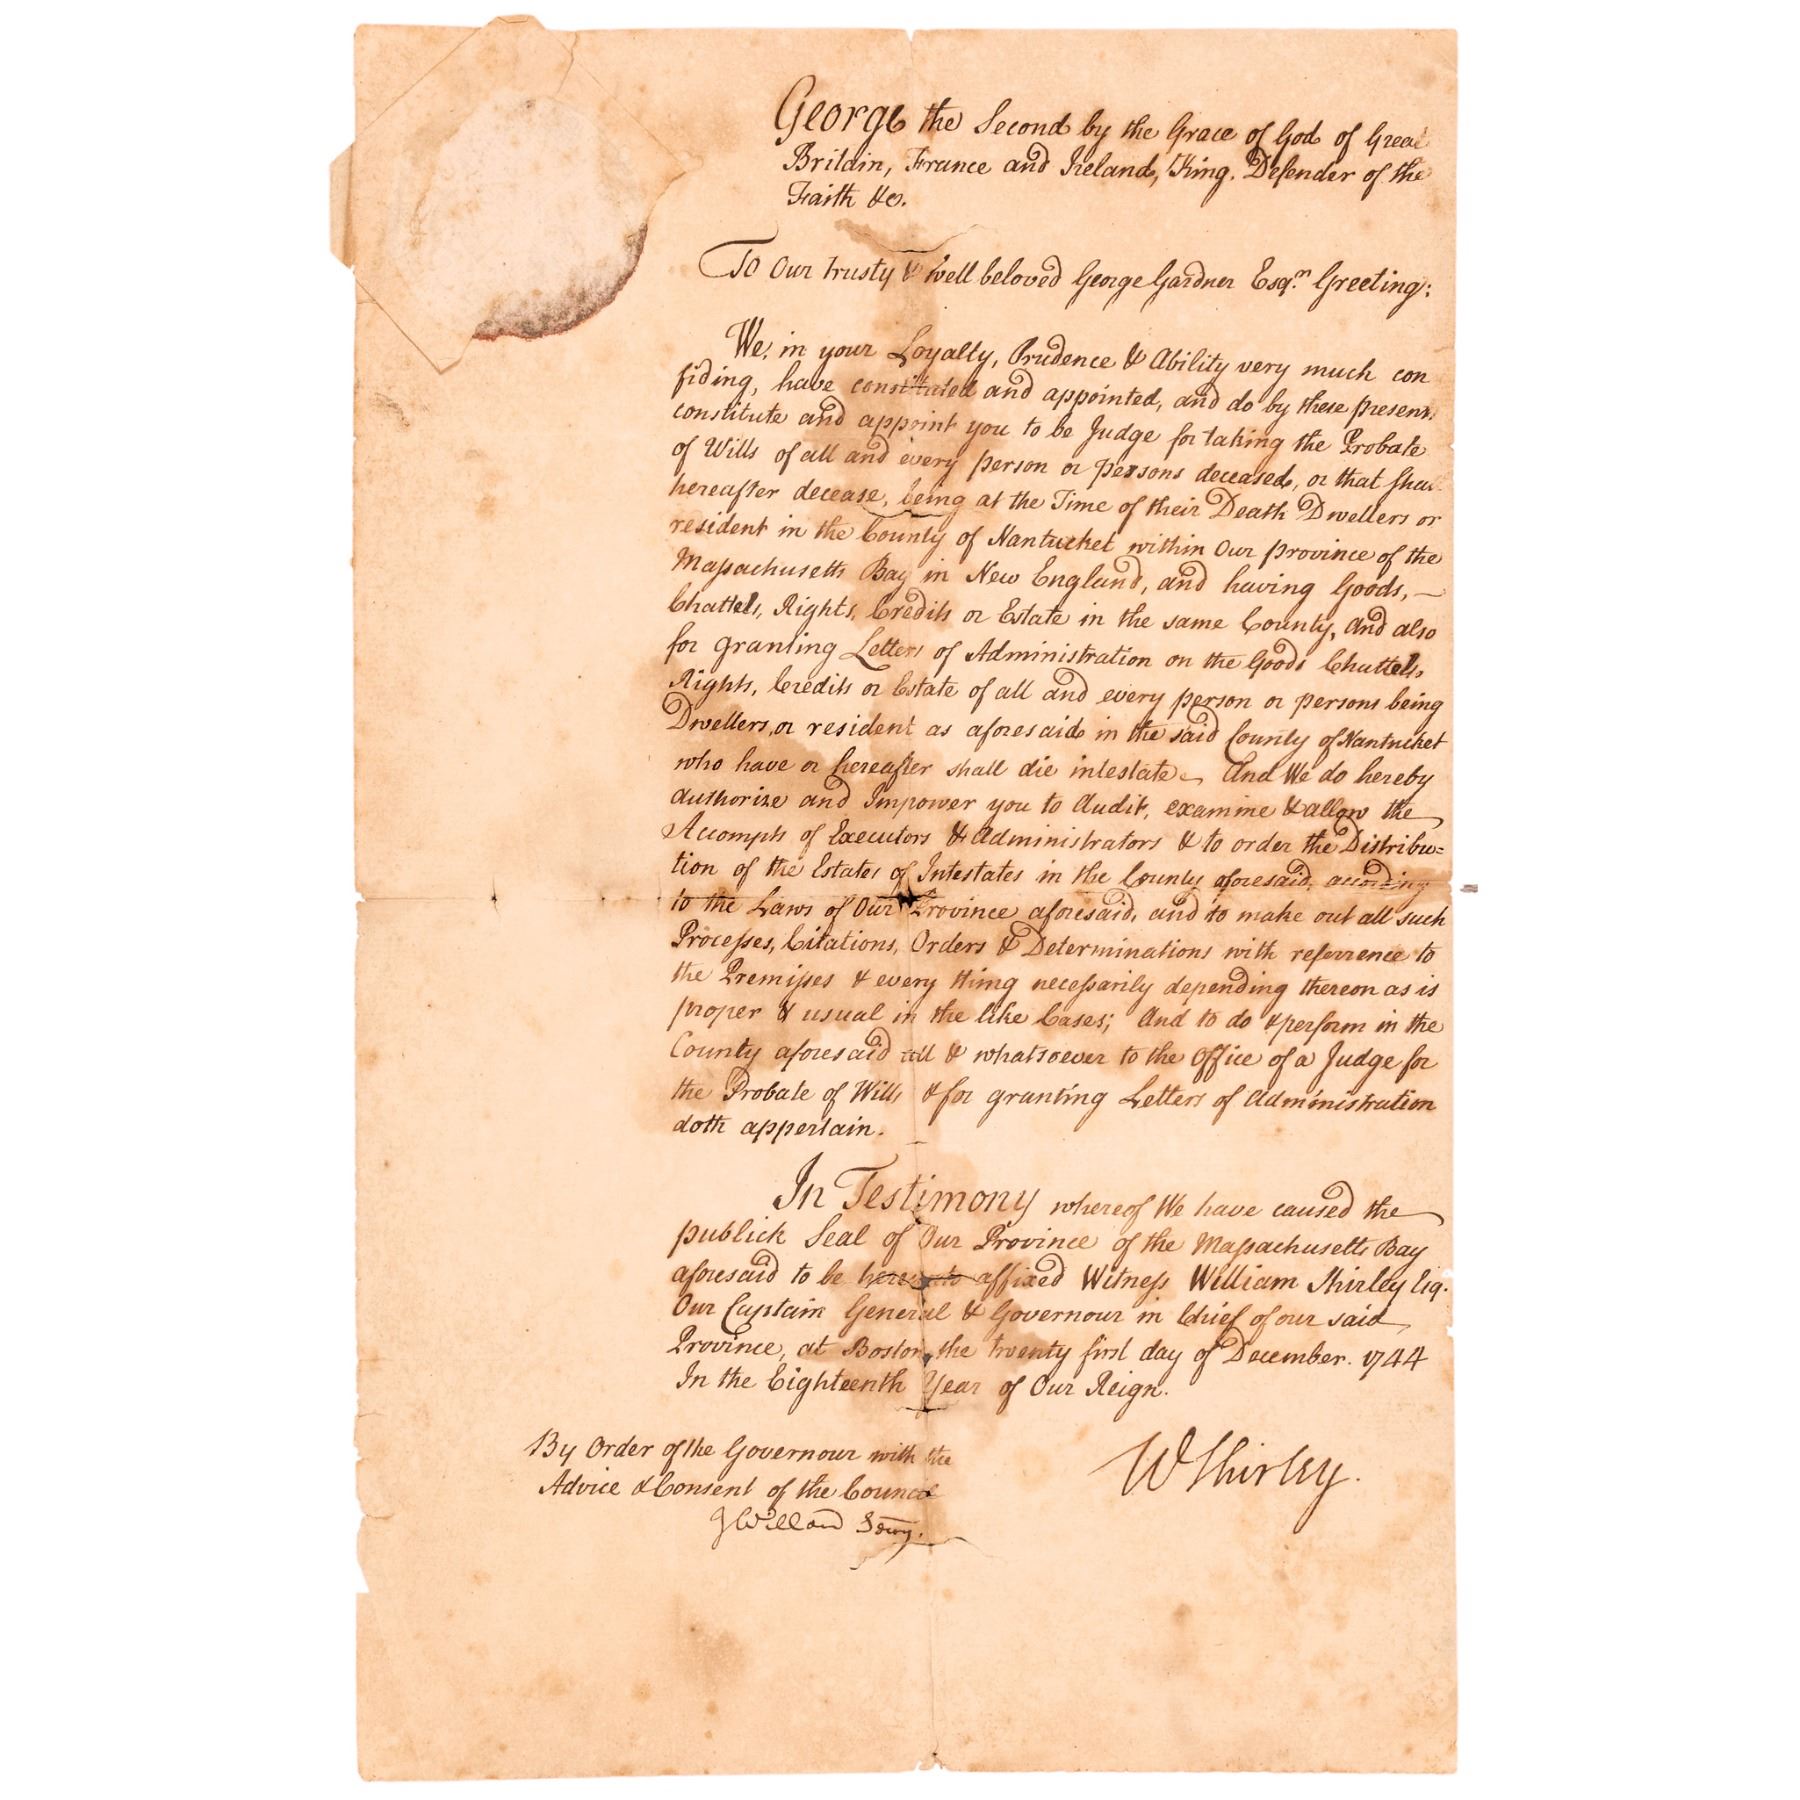 George the Second by the Grace of God of Great
Britain, France and Ireland, King, Defender of the
Faith &c.
To Our trusty & well beloved George Gardner Esqr. Greeting:
We, in your Loyalty, Prudence & Ability very much con
fiding, have constituted and appointed, and do by these present
constitute and appoint you to be Judge for taking the Probate
of Wills of all and every person or persons deceased, or that shall
hereafter decease, being at the Time of their Death Dwellers or
resident in the County of Nantucket within Our province of the
Massachusetts Bay in New England, and having Goods, –
Chattels, Rights, Credits or Estate in the same County, And also
for granting Letters of Administration on the Goods Chattels,
Rights, Credits or Estate of all and every person or persons being
Dwellers, or resident as aforesaid in the said County of Nantucket
who have or hereafter shall die intestate. And We do hereby
authorize and Impower you to Audit, examine & allow the
Accompts of Executors & Administrators & to order the Distribu=
tion of the Estates of Intestates in the County aforesaid, according
to the Laws of Our Province aforesaid, and to make out all such
Processes, Citations, Orders & Determinations with referrence to
the Premisses & every thing necessarily depending thereon as is
proper & usual in the like Cases; And to do & perform in the
County aforesaid all & whatsoever to the Office of a Judge for
the Probate of Wills & for granting Letters of Administration
doth appertain.
In Testimony whereof We have caused the
publick Seal of Our Province of the Massachusetts Bay
aforesaid to be hereunto affixed Witness William Shirley Esq.
Our Captain General & Governour in Chief of our said
Province, at Boston the twenty first day of December. 1744
In the Eighteenth Year of Our Reign.
By Order of the Governour with the
Advice & Consent of the Council
J Willard Secry.
W Shirley.